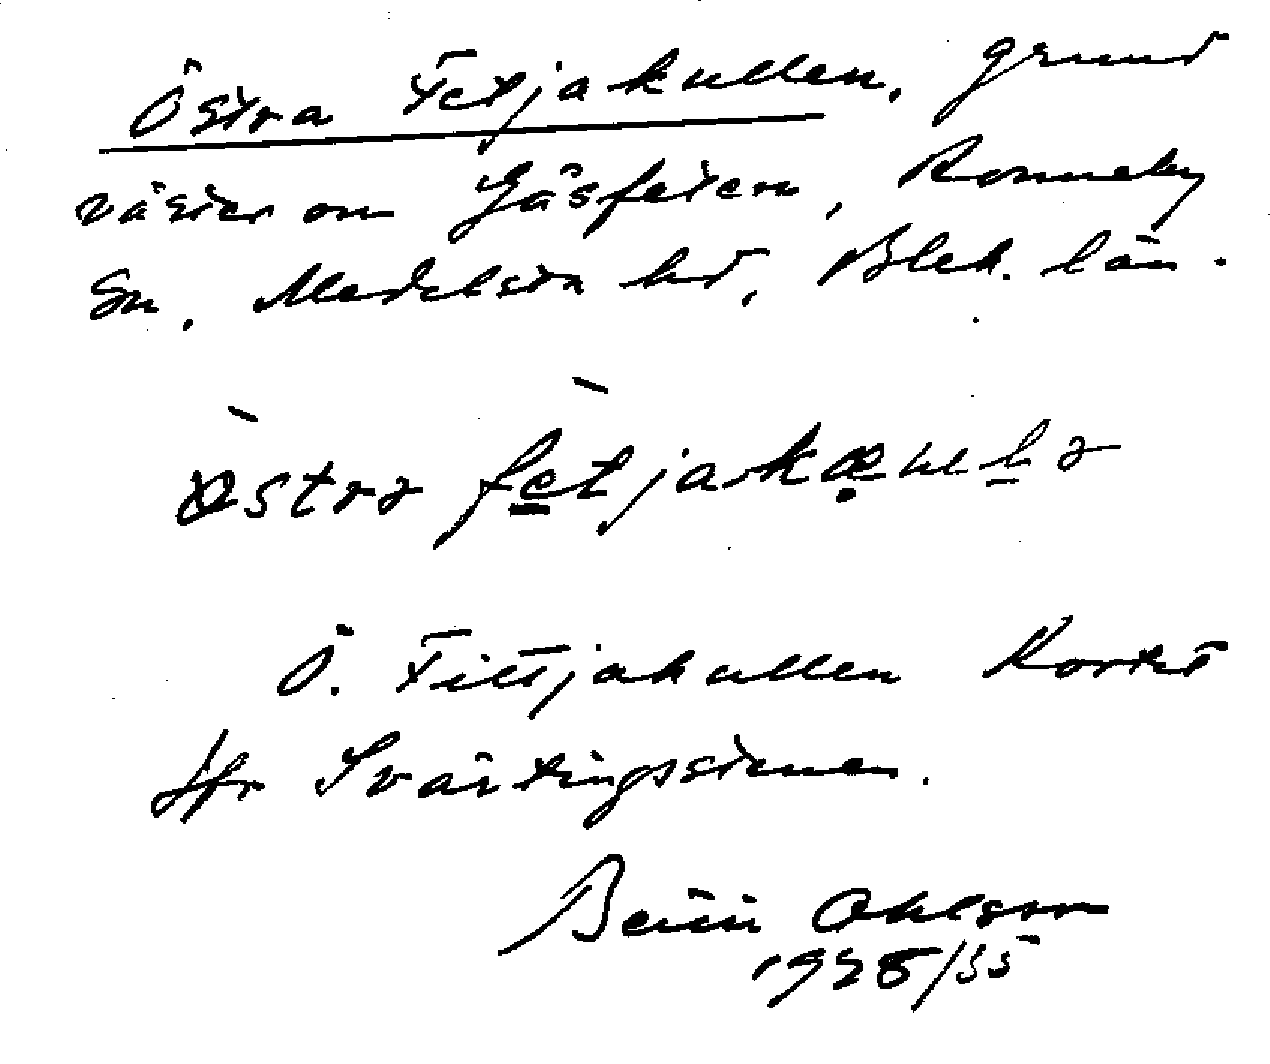 Östra Fetjakullen, grund
väster om Gåsfeten, Ronneby
Sn, Medelsta hd, Blek. län.
östrə fetjakænnelə
Ö. Fittjakullen Kortet
Jfr Svärtingsstenen.
Bertil Ohlsson
1928/35